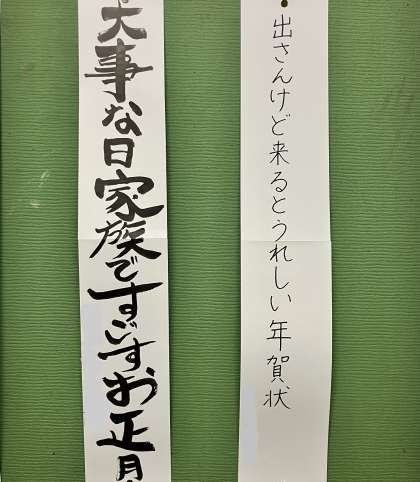 出さんけど来るとうれしい年賀状
大事な日家族ですごすお正月